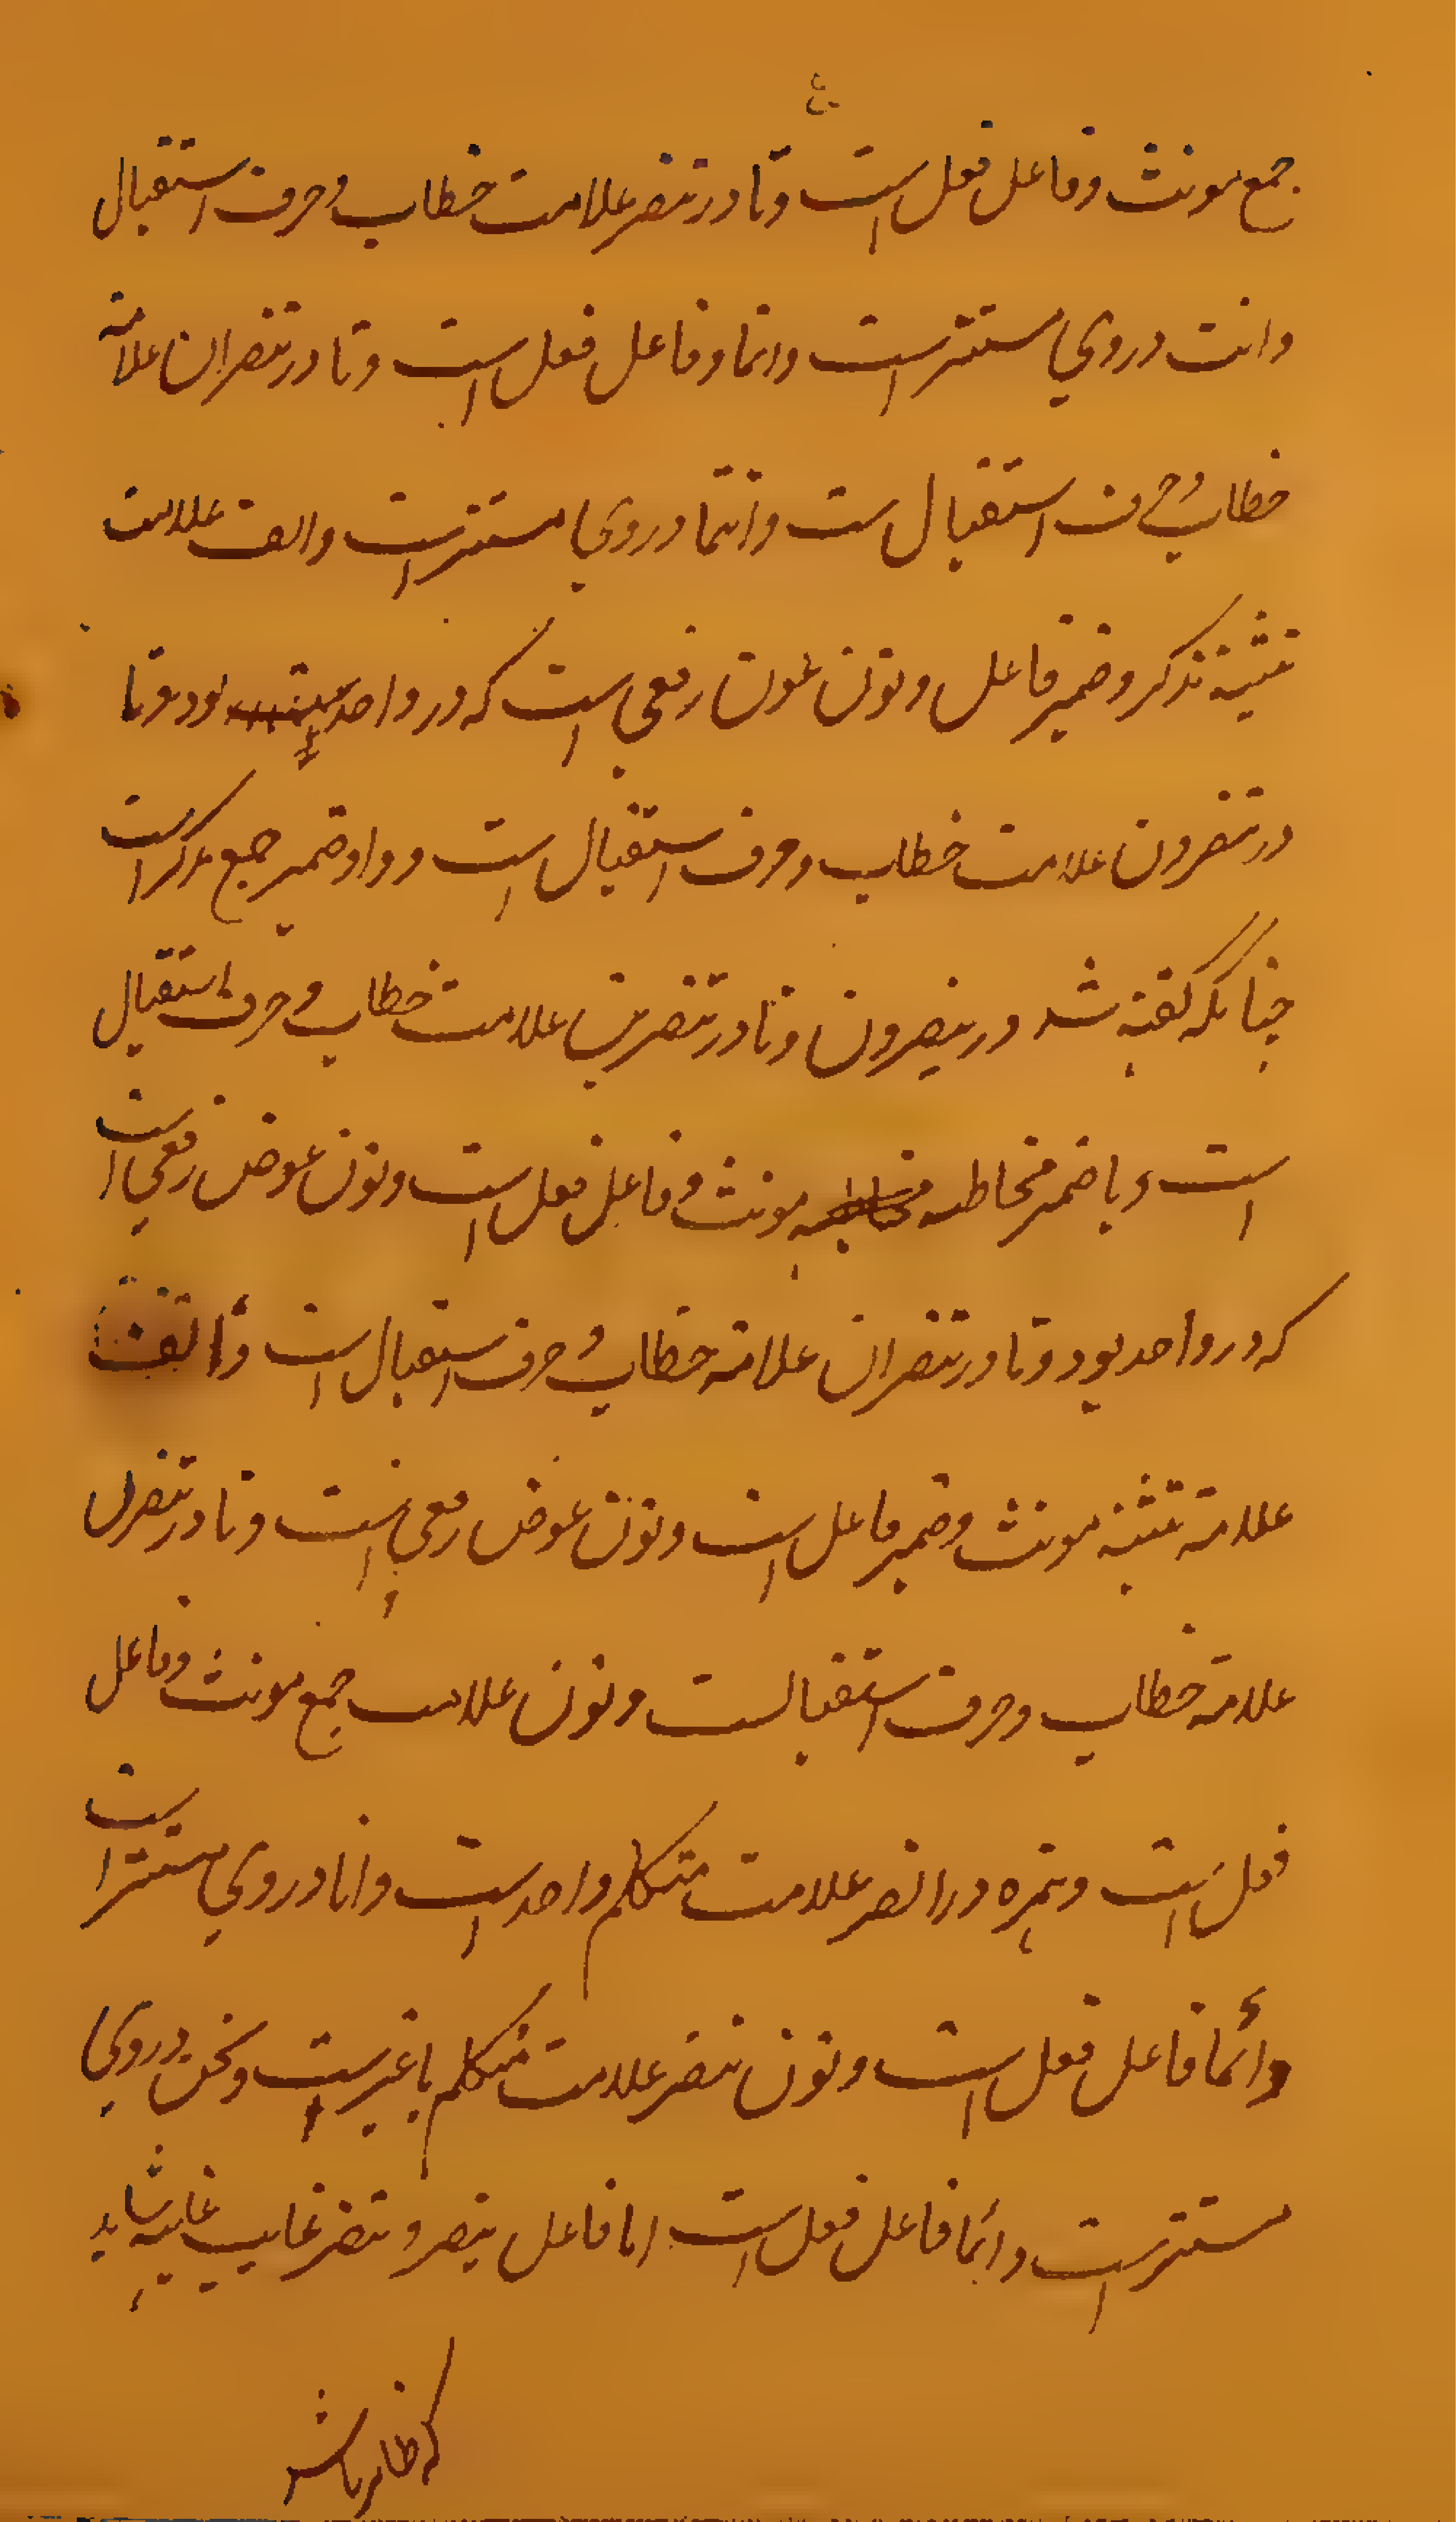 جمع مونث و فاعل فعل است و تا در تنصر علامت خطاب و حرف استقبال
و انت در وی مستتر است و دائما و فاعل فعل است و تا در تنصران علامة
خطاب و حرف استقبال ست و انتما در وی مستتر است و الف علامت
تثنیه مذکر و ضمیر فاعل و نون عوض رفعی است که در واحد بود و تا
در تنصرون علامت خطاب و حرف استقبال است و واو ضمیر جمع مذکر است
چنانکه گفته شد در ینصرون و تا در تنصرین علامت خطاب و حرف استقبال
است و یا ضمیر مخاطبه مونث و فاعل فعل است و نون عوض رفعی است
که در واحد بود و تا در تنصران علامة خطاب و حرف استقبال است و الف
علامة تثنیه مونث و ضمیر فاعل است و نون عوض رفعی است و تا در تنصرن
علامة خطاب و حرف استقبالست و نون علامت جمع مونث و فاعل
فعل است و همزه در انصر علامت متکلم واحد است و انا در وی مستتر است
و دائما فاعل فعل است و نون ننصر علامت متکلم با غیر است و نحن در وی
مستتر است و دائما فاعل فعل است اما فاعل ینصر و تنصر غایب غایبه شاید
که ظاهر باشد